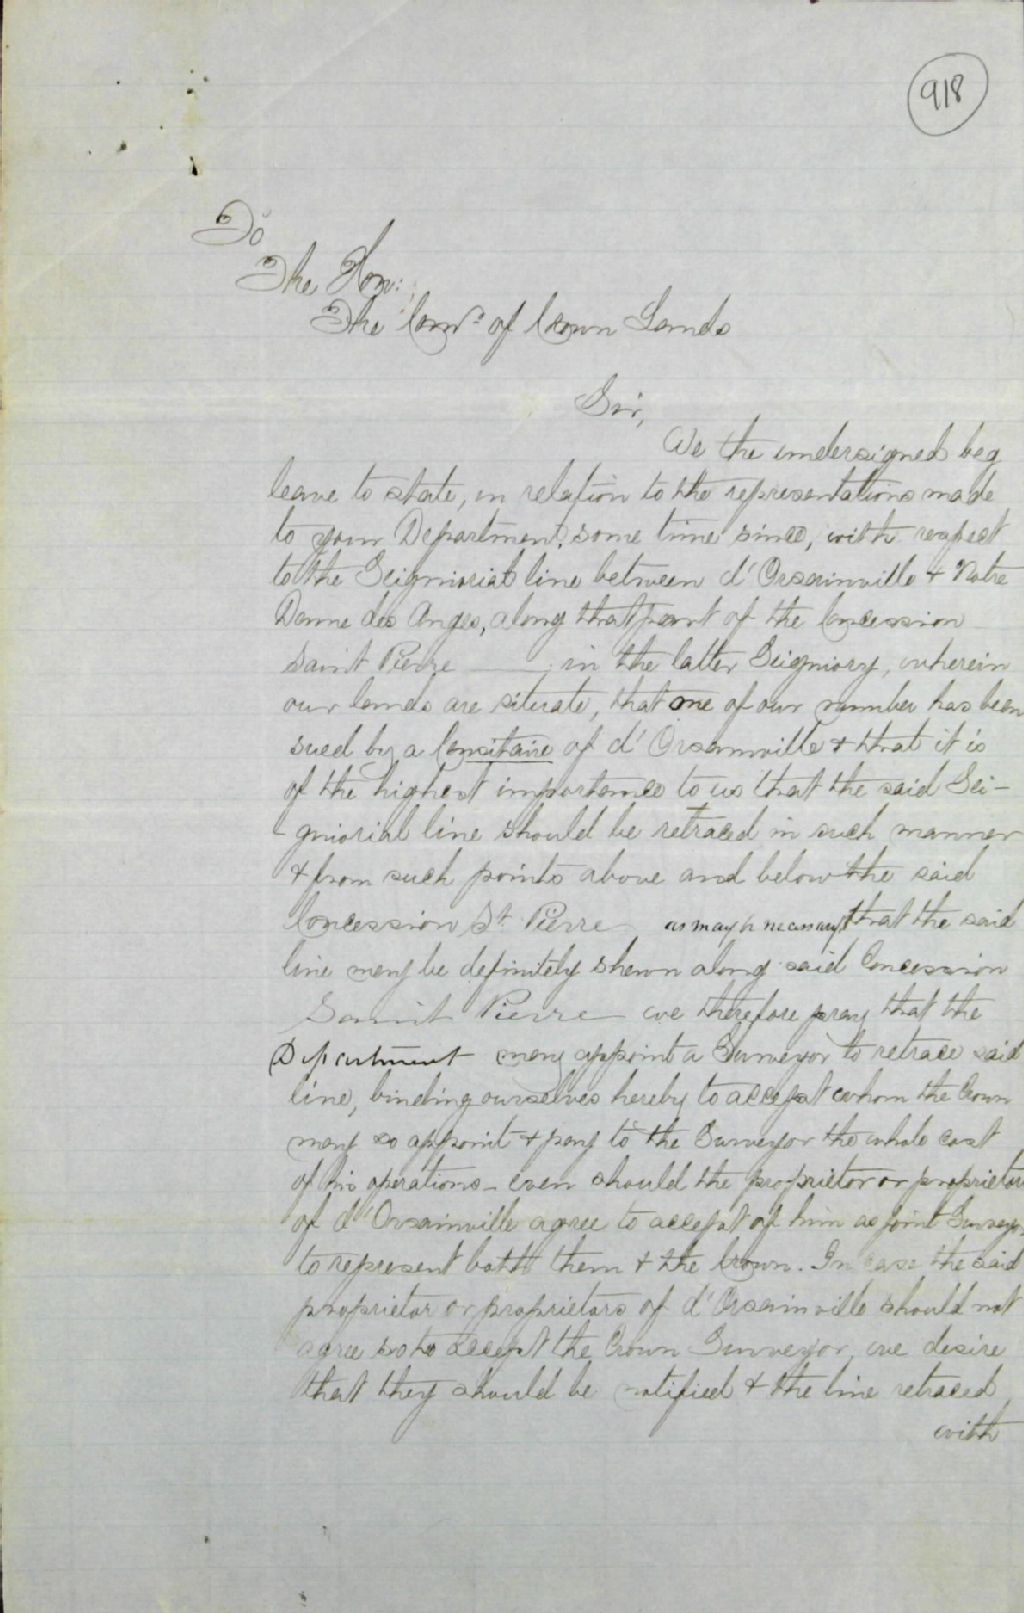 918
To
The Hon:
The Comr. of Crown Lands
Sir,
We the undersigned beg
leave to state, in relation to the representations made
to your Department, some time since, with respect
to the Seigniorial line between d'Orsainville & Notre
Dame des Anges, along that part of the Concession
Saint Pierre in the latter Seigniory, wherein
our lands are situate, that one of our number has been
sued by a Censitaire of d'Orsainville & that it is
of the highest importance to us that the said Sei-
gniorial line should be retraced in such manner
& from such points above and below the said
Concession St. Pierre as may be necessary that the said
line may be definitely shewn along said Concession
Saint Pierre we therefore pray that the
Department may appoint a Surveyor to retrace said
line, binding ourselves hereby to accept whom the Crown
may so appoint & pay to the Surveyor the whole cost
of his operations - even should the proprietor or proprietors
of d'Orsainville agree to accept of him as joint Surveyor
to represent both them & the Crown. In case the said
proprietor or proprietors of d'Orsainville should not
agree so to accept the Crown Surveyor, we desire
that they should be notified & the line retraced
with